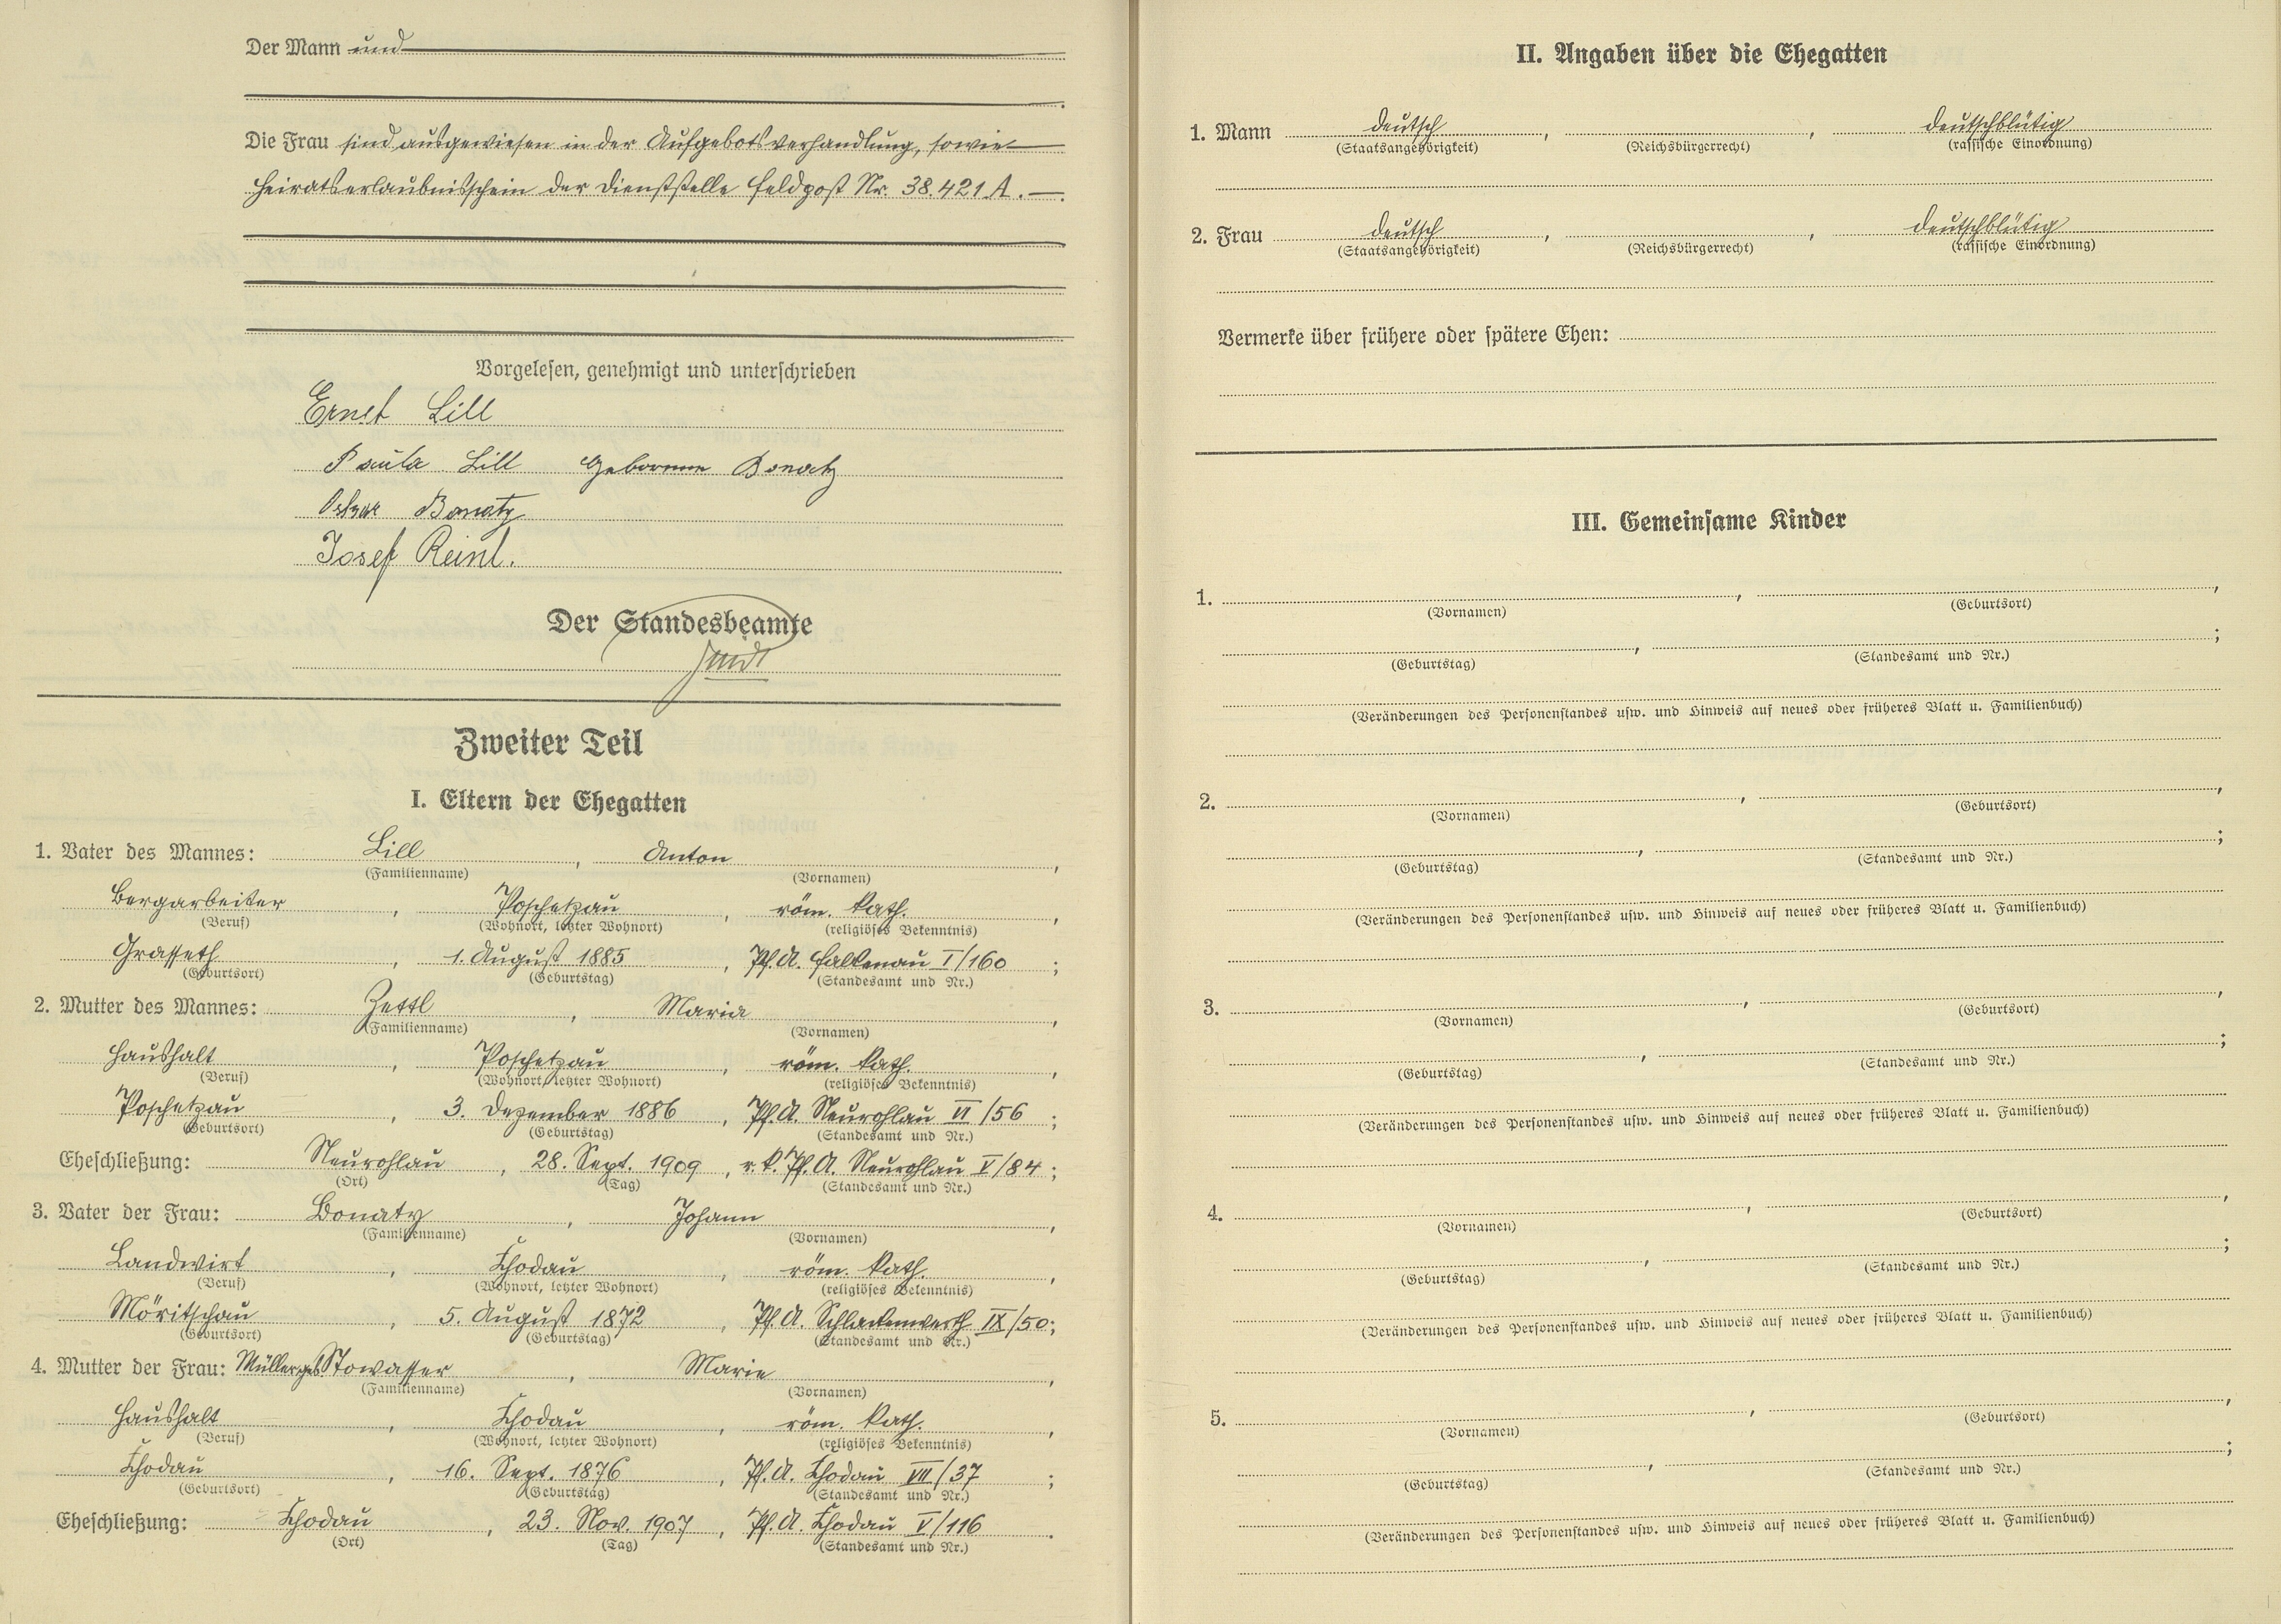 Der Mann und
Die Frau sind ausgewiesen in der Aufgebotsverhandlung, sowie
Heiratserlaubnisschein der Dienststelle Feldpost Nr. 38.421 A.
Vorgelesen, genehmigt und unterschrieben
Ernst Lill
Paula Lill geborene Bonatz
Oskar Bonatz
Josef Reinl.
Der Standesbeamte
Zweiter Teil
I. Eltern der Ehegatten
1. Vater des Mannes: Lill, Anton,
(Familienname) (Vornamen)
Bergarbeiter, Poschetzau, röm. kath.,
(Beruf) (Wohnort, letzter Wohnort) (religiöses Bekenntnis)
Grasseth, 1. August 1885, Pf. A. Falkenau I/160;
(Geburtsort) (Geburtstag) (Standesamt und Nr.)
2. Mutter des Mannes: Zettl, Maria,
(Familienname) (Vornamen)
Haushalt, Poschetzau, röm. kath.,
(Beruf) (Wohnort, letzter Wohnort) (religiöses Bekenntnis)
Poschetzau, 3. Dezember 1886, Pf. A. Neurohlau VI/56;
(Geburtsort) (Geburtstag) (Standesamt und Nr.)
Eheschließung: Neurohlau, 28. Sept. 1909, r. k. Pf. A. Neurohlau V/84;
(Ort) (Tag) (Standesamt und Nr.)
3. Vater der Frau: Bonatz, Johann,
(Familienname) (Vornamen)
Landwirt, Chodau, röm. kath.,
(Beruf) (Wohnort, letzter Wohnort) (religiöses Bekenntnis)
Möritschau, 5. August 1872, Pf. A. Schlackenwerth IX/50;
(Geburtsort) (Geburtstag) (Standesamt und Nr.)
4. Mutter der Frau: Müller geb. Stowasser, Marie,
(Familienname) (Vornamen)
Haushalt, Chodau, röm. kath.,
(Beruf) (Wohnort, letzter Wohnort) (religiöses Bekenntnis)
Chodau, 16. Sept. 1876, Pf. A. Chodau VII/37;
(Geburtsort) (Geburtstag) (Standesamt und Nr.)
Eheschließung: Chodau, 23. Nov. 1907, Pf. A. Chodau V/116.
(Ort) (Tag) (Standesamt und Nr.)
II. Angaben über die Ehegatten
1. Mann deutsch, , deutschblütig
(Staatsangehörigkeit) (Reichsbürgerrecht) (rassische Einordnung)
2. Frau deutsch, , deutschblütig
(Staatsangehörigkeit) (Reichsbürgerrecht) (rassische Einordnung)
Vermerke über frühere oder spätere Ehen:
III. Gemeinsame Kinder
1. , ,
(Vornamen) (Geburtsort)
, ;
(Geburtstag) (Standesamt und Nr.)
(Veränderungen des Personenstandes usw. und Hinweis auf neues oder früheres Blatt u. Familienbuch)
2. , ,
(Vornamen) (Geburtsort)
, ;
(Geburtstag) (Standesamt und Nr.)
(Veränderungen des Personenstandes usw. und Hinweis auf neues oder früheres Blatt u. Familienbuch)
3. , ,
(Vornamen) (Geburtsort)
, ;
(Geburtstag) (Standesamt und Nr.)
(Veränderungen des Personenstandes usw. und Hinweis auf neues oder früheres Blatt u. Familienbuch)
4. , ,
(Vornamen) (Geburtsort)
, ;
(Geburtstag) (Standesamt und Nr.)
(Veränderungen des Personenstandes usw. und Hinweis auf neues oder früheres Blatt u. Familienbuch)
5. , ,
(Vornamen) (Geburtsort)
, ;
(Geburtstag) (Standesamt und Nr.)
(Veränderungen des Personenstandes usw. und Hinweis auf neues oder früheres Blatt u. Familienbuch)